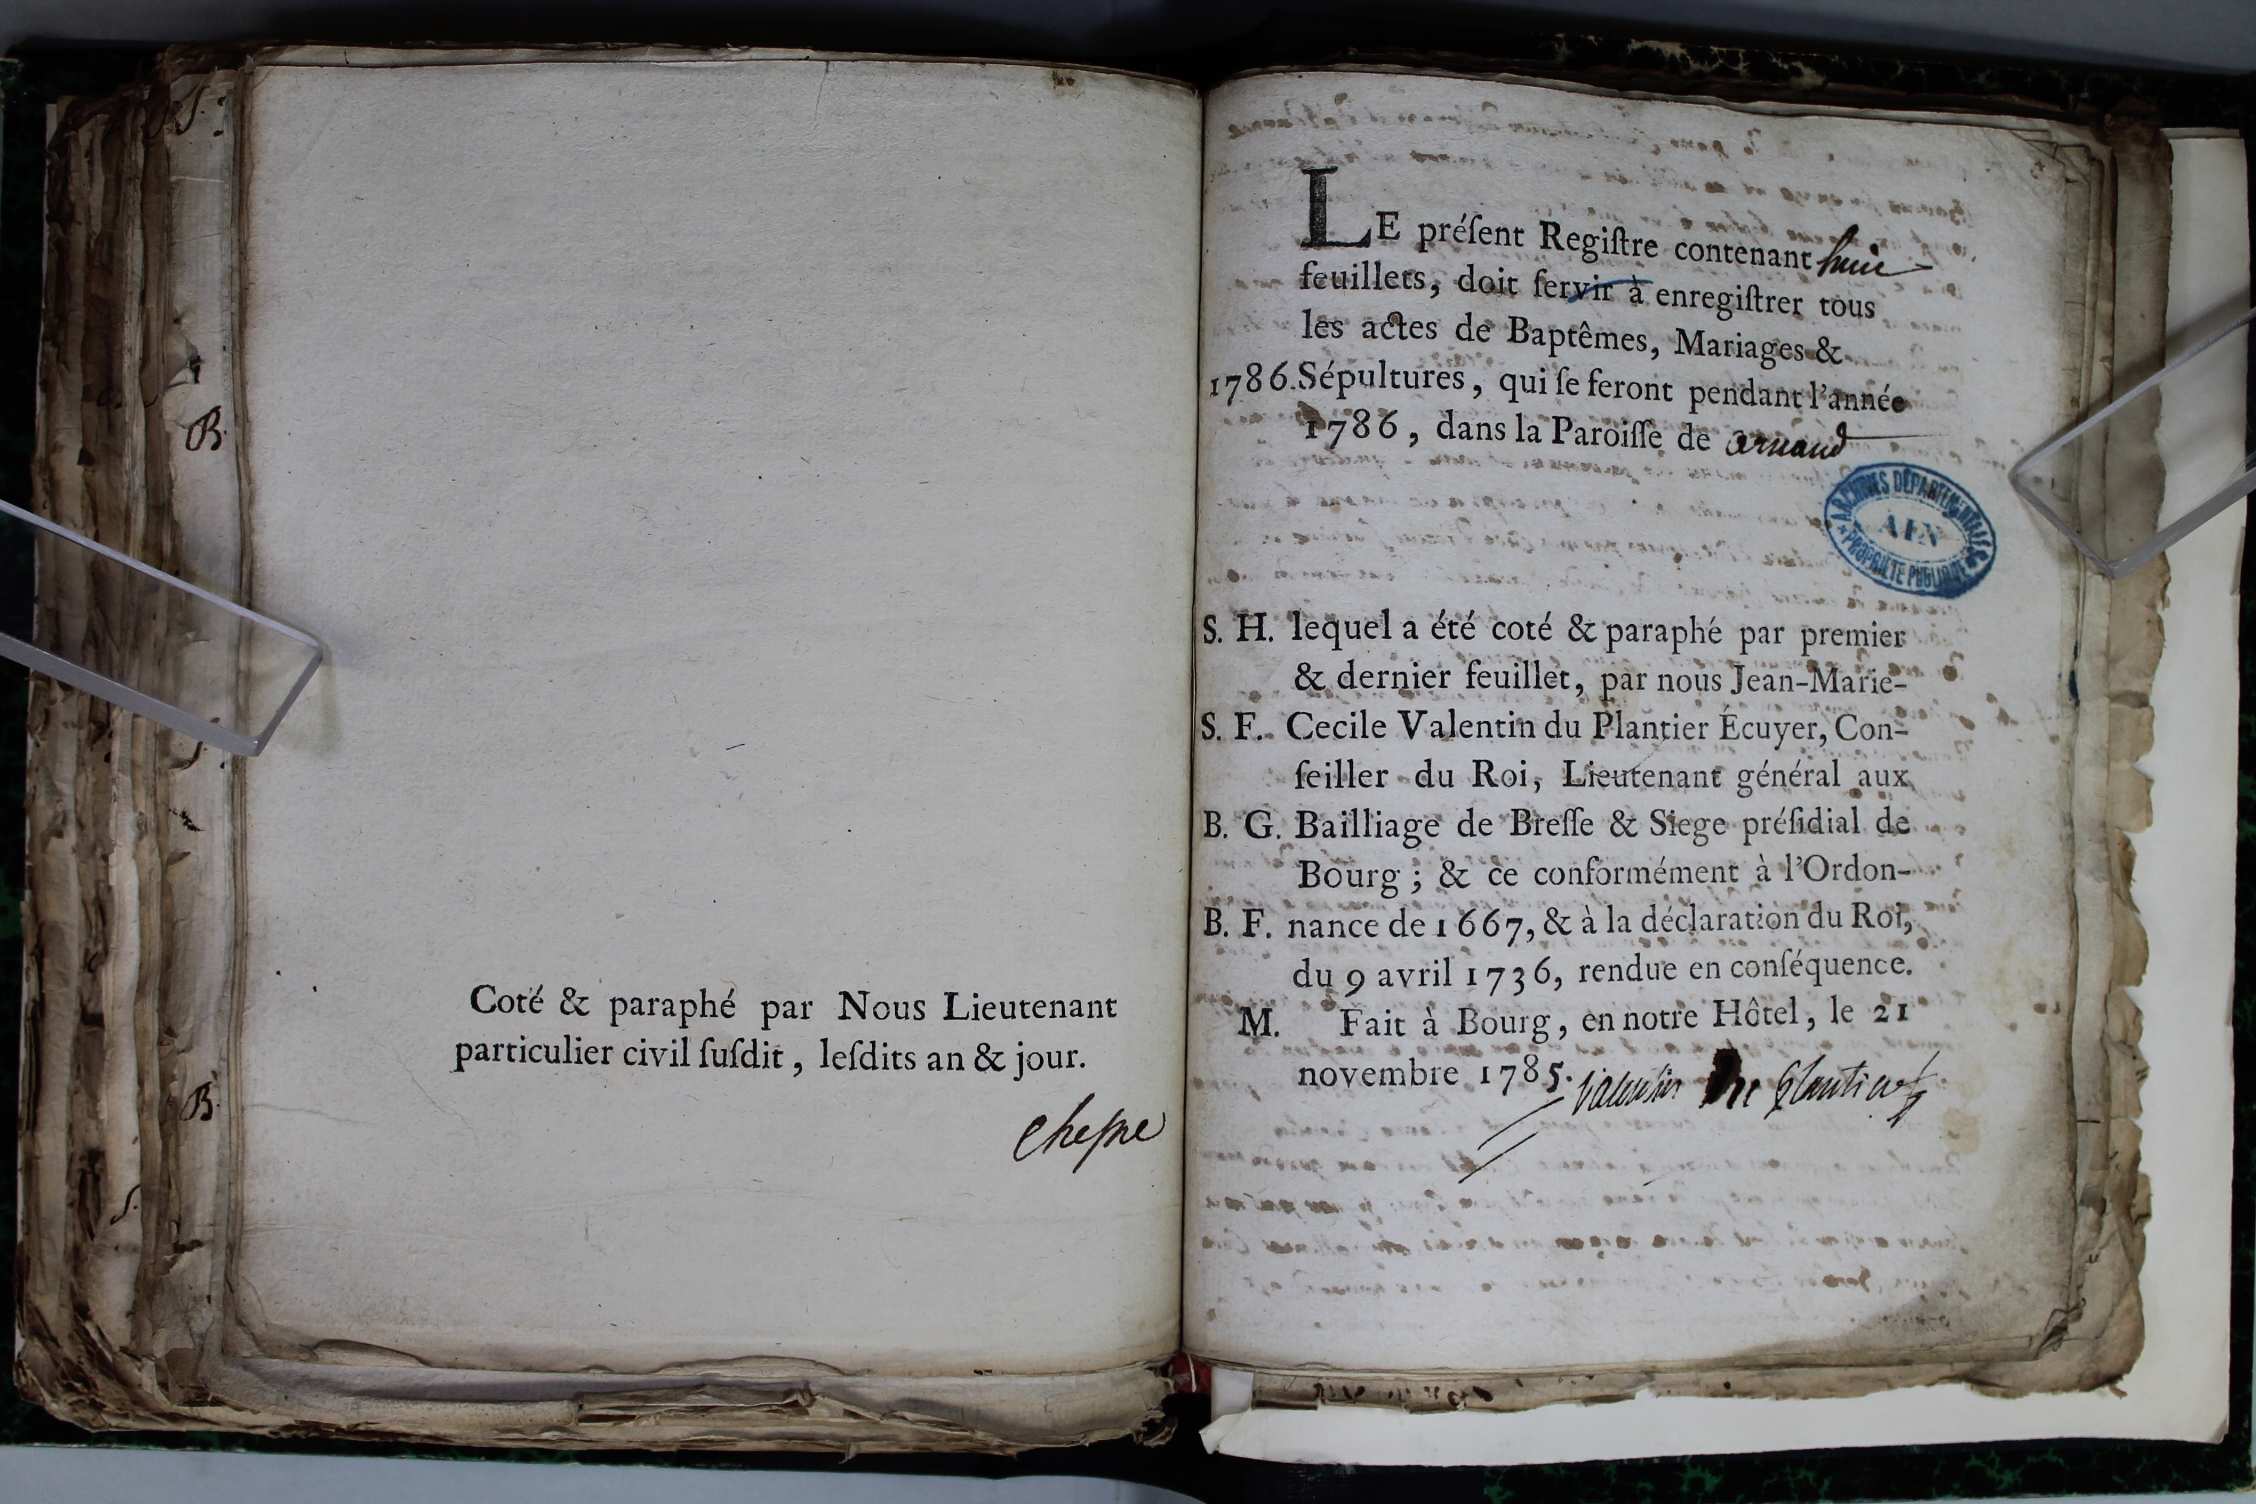 Coté & paraphé par Nous Lieutenant
particulier civil ſuſdit, leſdits an & jour.
LE préſent Regiſtre contenant huit
feuillets, doit ſervir à enregiſtrer tous
les actes de Baptêmes, Mariages &
1786. Sépultures, qui ſe feront pendant l'année
1786, dans la Paroiſſe de arnaud
ARCHIVES DÉPARTEMENTALES
AIN
PROPRIÉTÉ PUBLIQUE
S. H. lequel a été coté & paraphé par premier
& dernier feuillet, par nous Jean-Marie-
S. F. Cecile Valentin du Plantier Écuyer, Con-
ſeiller du Roi, Lieutenant général aux
B. G. Bailliage de Breſſe & Siege préſidial de
Bourg; & ce conformément à l'Ordon-
B. F. nance de 1667, & à la déclaration du Roi,
du 9 avril 1736, rendue en conſéquence.
M. Fait à Bourg, en notre Hôtel, le 21
novembre 1785. Valentin Du Plantier
S.
B.
B.
S.